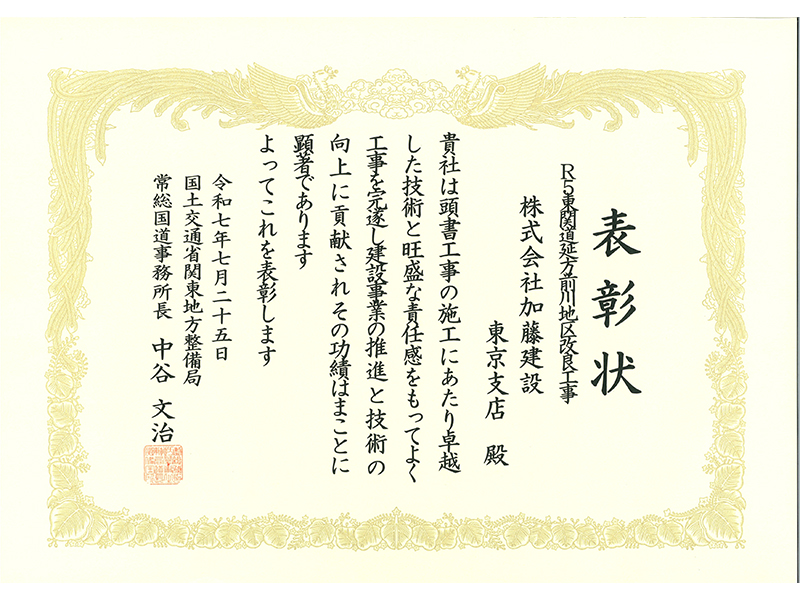 表彰状
R5東関道延方前川地区改良工事
株式会社加藤建設
東京支店 殿
貴社は頭書工事の施工にあたり卓越
した技術と旺盛な責任感をもってよく
工事を完遂し建設事業の推進と技術の
向上に貢献されその功績はまことに
顕著であります
よってこれを表彰します
令和七年七月二十五日
国土交通省関東地方整備局
常総国道事務所長 中谷 文治